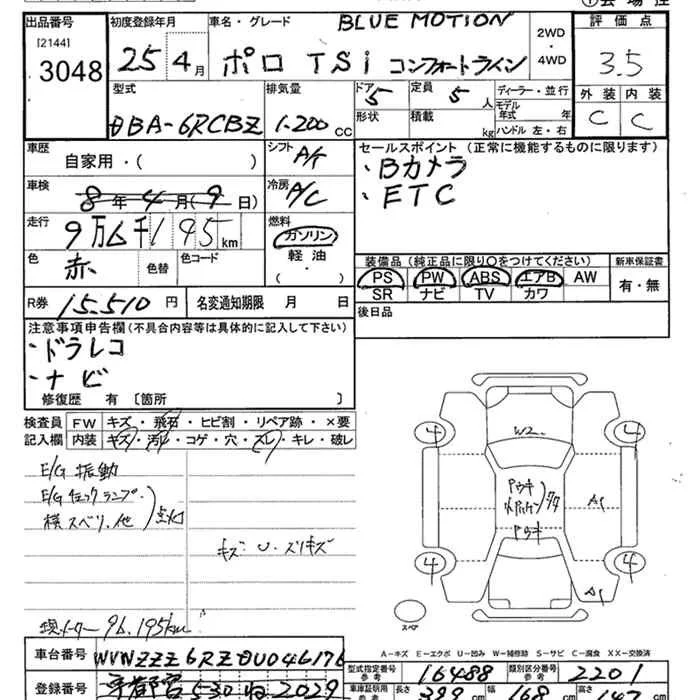 出品番号 初度登録年月 車名・グレード BLUE MOTION 2WD 評価点
[2144]
3048 25年4月 ポロ TSi コンフォートライン ・ 4WD 3.5
型式 排気量 ドア 5 定員 5人 ディーラー・並行 外装 内装
DBA-6RCBZ 1.200cc 形状 積載 kg モデル年式 年 ハンドル 左・右 C C
車歴 自家用・( ) シフト A/T セールスポイント (正常に機能するものに限ります)
・Bカメラ
車検 8年4月(9日) 冷房 A/C ・ETC
走行 9万6千195km 燃料 ガソリン
軽油
( )
色 赤 色替 色コード
装備品 (純正品に限り○をつけてください) 新車保証書
PS PW ABS エアB AW 有・無
SR ナビ TV カワ
R券 15,510円 名変通知期限 月 日 後日品
注意事項申告欄(不具合内容等は具体的に記入して下さい)
・ドラレコ
・ナビ
修復歴 有 〔箇所 〕
検査員 FW キズ・飛石・ヒビ割・リペア跡・×要
記入欄 内装 キズ・汚れ・コゲ・穴・スレ・キレ・破レ
E/G 振動
E/Gチェックランプ・
横スベリ、他 点灯
キズ U・スリキズ
現メーター 96,195km
W2
4 4
A1
4 4
A1
スペア
A-キズ E-エクボ U-凹み W-補修跡 S-サビ C-腐食 XX-交換済
車台番号 WVWZZZ6RZDU046176 型式指定番号 参考 16488 類別区分番号 参考 2201
登録番号 宇都宮 530 ね 2029 車車証明用 参考 長さ 幅 168 高さ